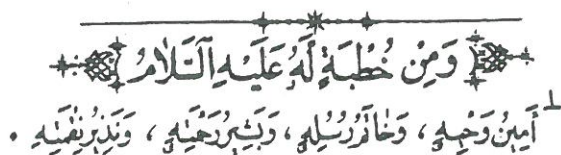 وَمِنْ خُطْبَةٍ لَهُ عَلَيْهِ السَّلَامُ
أَمِينُ وَحْيِهِ ، وَخَاتَمُ رُسُلِهِ ، وَبَشِيرُ رَحْمَتِهِ ، وَنَذِيرُ نِقْمَتِهِ .